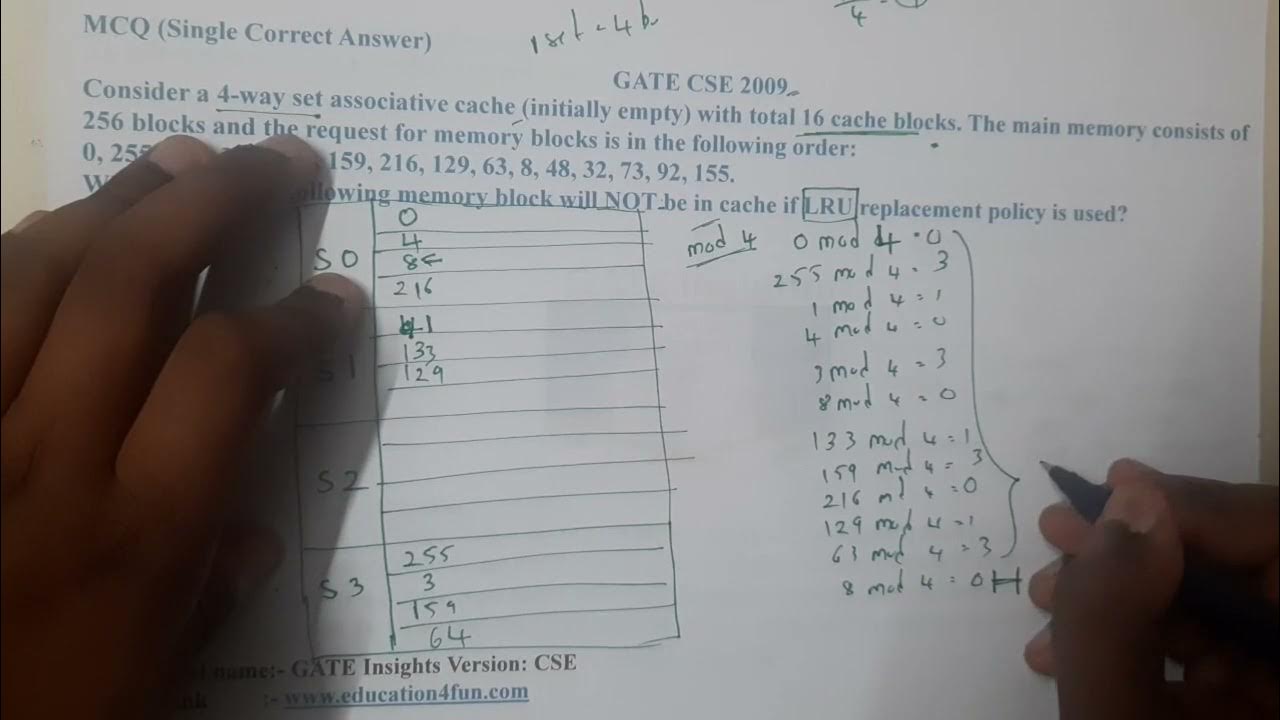 1 set = 4 b
4
MCQ (Single Correct Answer)
GATE CSE 2009
Consider a 4-way set associative cache (initially empty) with total 16 cache blocks. The main memory consists of
256 blocks and the request for memory blocks is in the following order:
0, 255 159, 216, 129, 63, 8, 48, 32, 73, 92, 155.
W ollowing memory block will NOT be in cache if LRU replacement policy is used?
mod 4
S0
0
4
8
216
S1
1
133
129
S2
S3
255
3
159
64
0 mod 4 = 0
255 mod 4 = 3
1 mod 4 = 1
4 mod 4 = 0
3 mod 4 = 3
8 mod 4 = 0
133 mod 4 = 1
159 mod 4 = 3
216 md 4 = 0
129 mod 4 = 1
63 mod 4 = 3
8 mod 4 = 0 H
name:- GATE Insights Version: CSE
nk :- www.education4fun.com